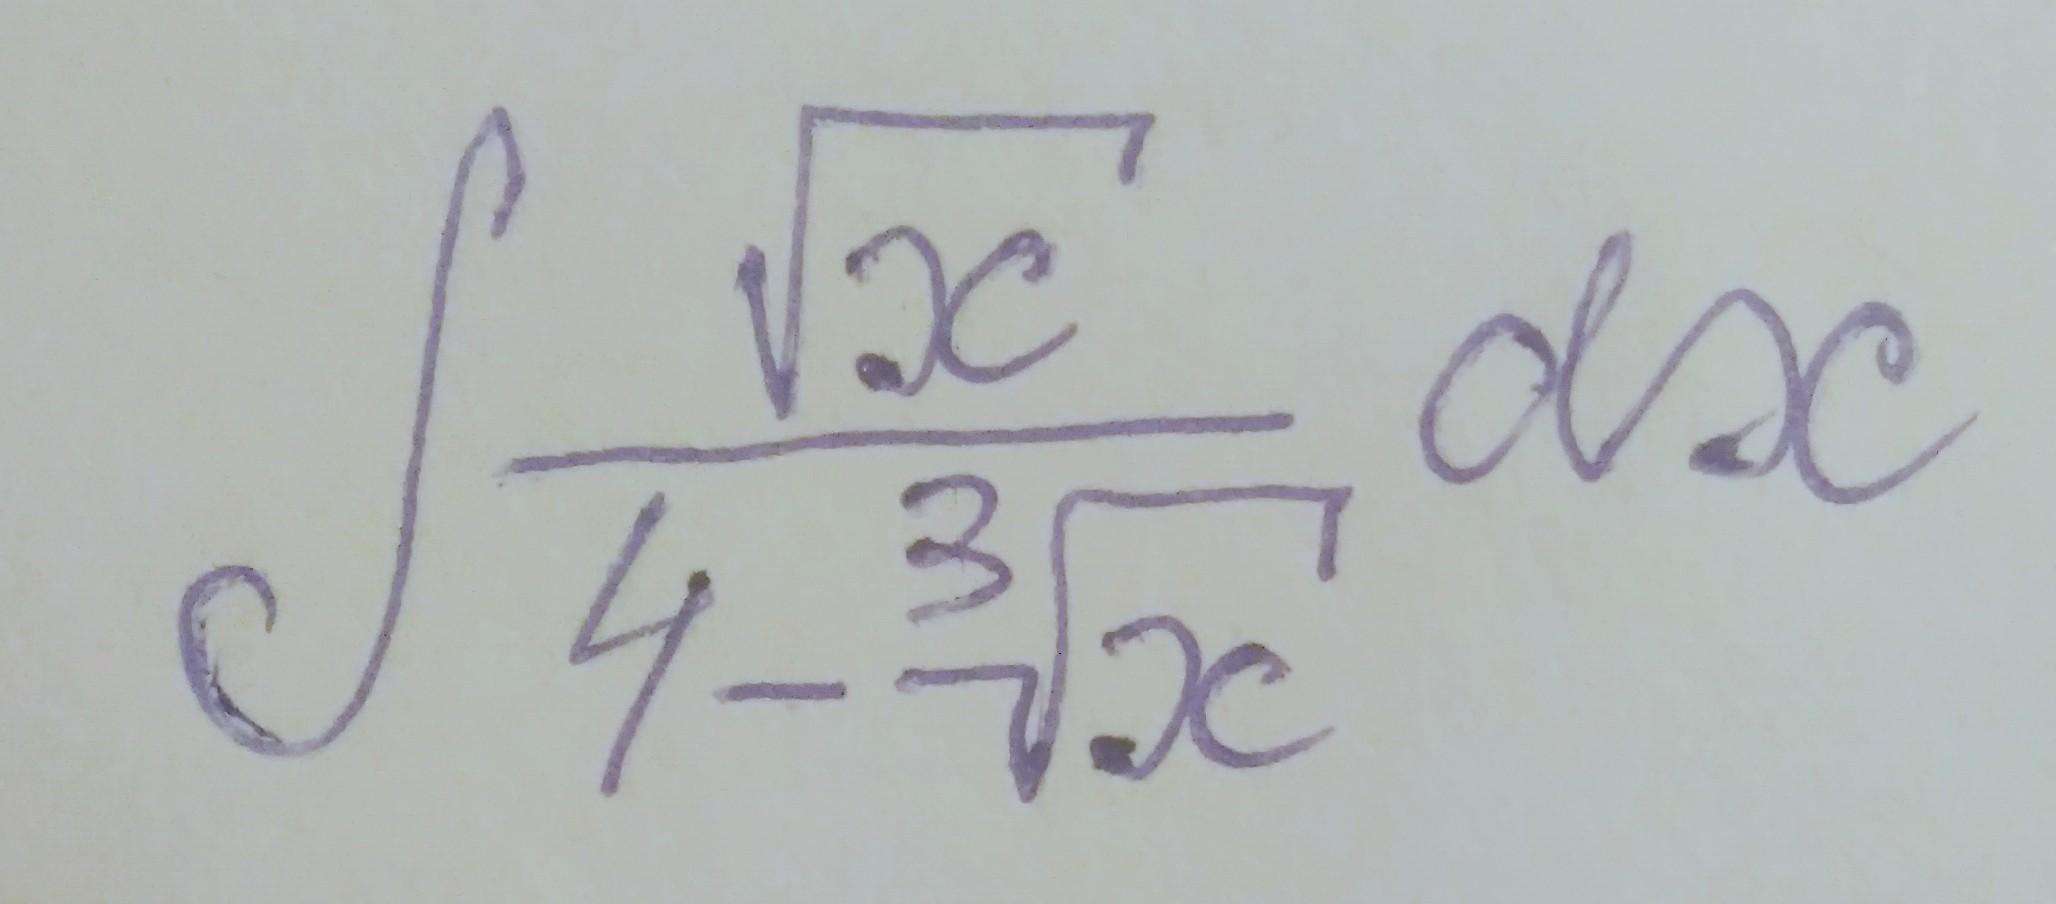 ∫ √x / (4 - ∛x) dx